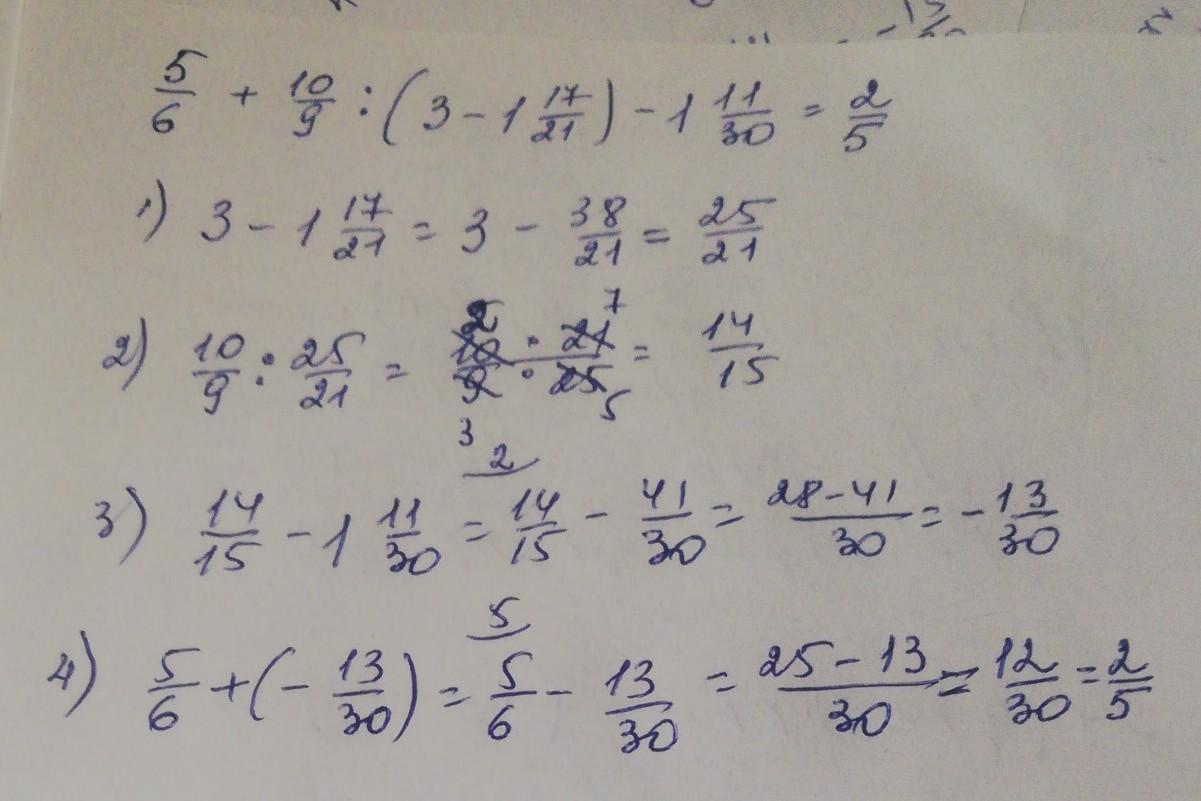 5/6 + 10/9 : (3 - 1 17/21) - 1 11/30 = 2/5
1) 3 - 1 17/21 = 3 - 38/21 = 25/21
2) 10/9 : 25/21 = 2 10 · 21 7 / 3 9 · 25 5 = 14/15
3) 14/15 - 1 11/30 = 2 14/15 - 41/30 = 28-41/30 = - 13/30
4) 5/6 + (- 13/30) = 5 5/6 - 13/30 = 25-13/30 = 12/30 = 2/5